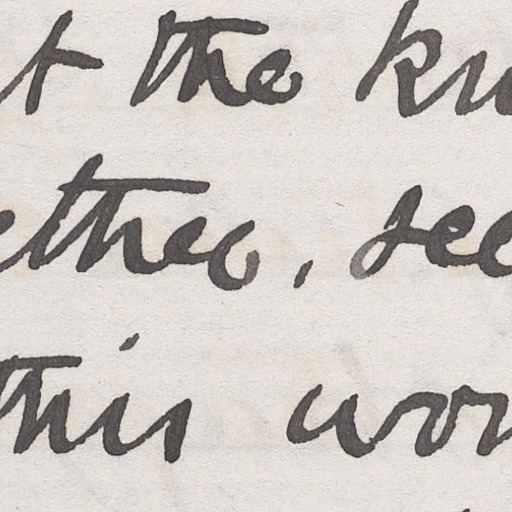 t the kn
ether, see
this wor